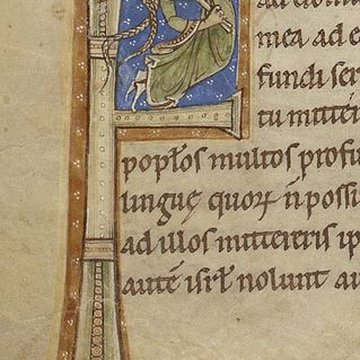 mea ad e
fundi ser
tu mittei
poptos multos profu
linguę quoꝝ n̄ possi
ad illos mittereris ip
autē isrƚ nolunt au